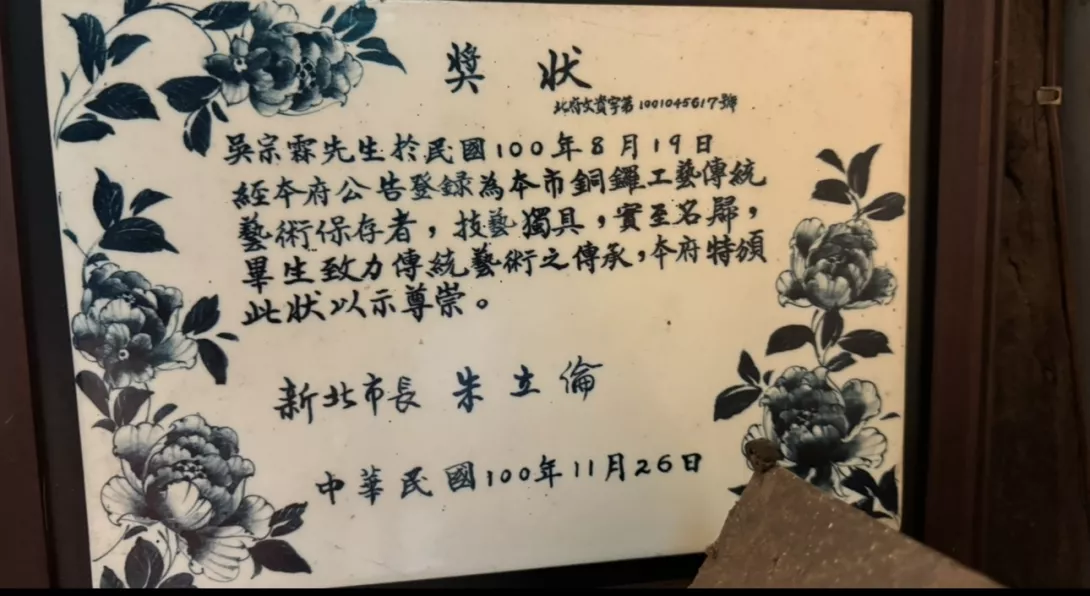 獎狀
北府文資字第1001045617號
吳宗霖先生於民國100年8月19日
經本府公告登錄為本市銅鑼工藝傳統
藝術保存者，技藝獨具，實至名歸，
畢生致力傳統藝術之傳承，本府特頒
此狀以示尊崇。
新北市長 朱立倫
中華民國100年11月26日